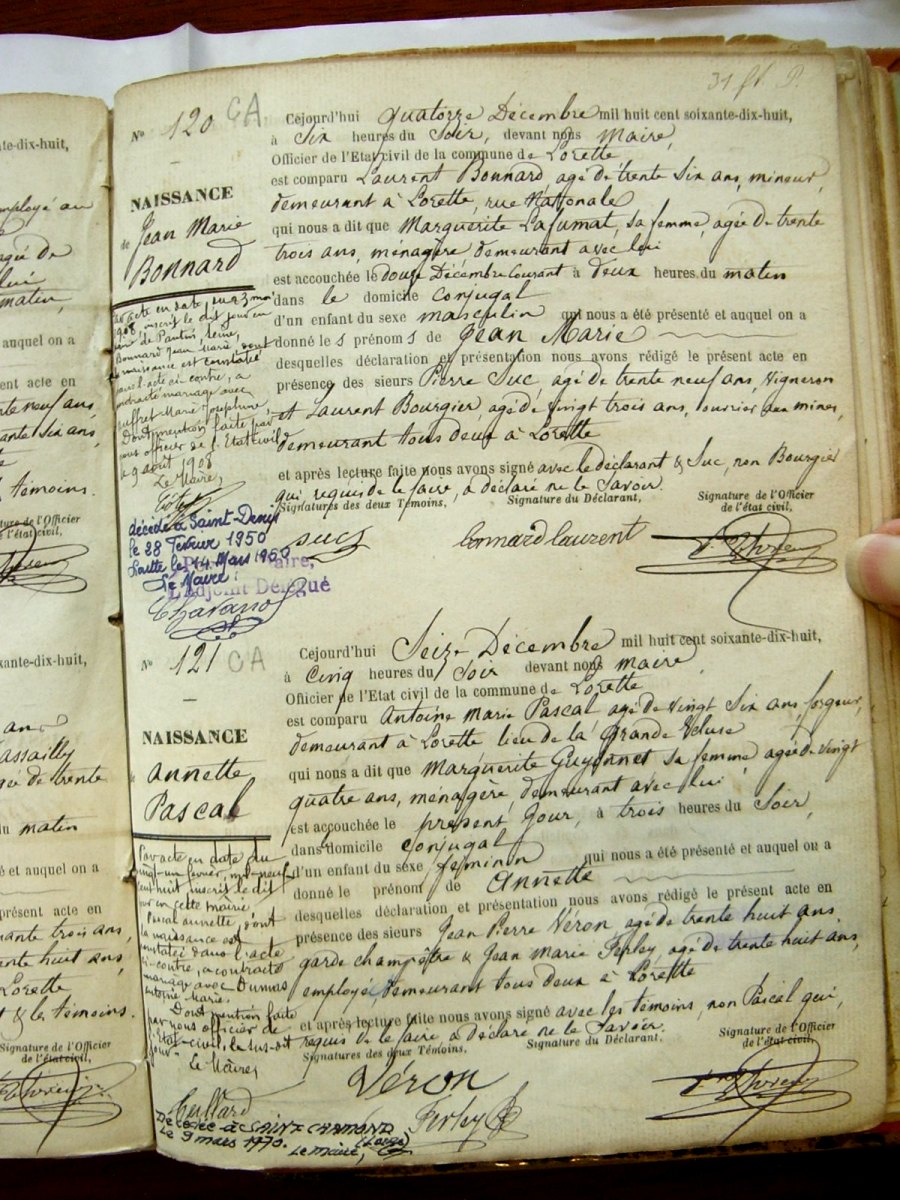 31 ft. P.
N° 120 CA
NAISSANCE
de Jean Marie
Bonnard
Par acte en date du 23 mai
1908, inscrit le dit jour en
mairie de Pantin, Seine,
Bonnard Jean Marie, dont
la naissance est constatée
dans l'acte ci contre, a
contracté mariage avec
Marie Joséphine.
Dont mention faite par
nous officier de l'Etat civil
le 9 août 1908
Le Maire,
décédé à Saint-Denis
le 28 Février 1950
Lorette le 14 Mars 1950
Le Maire:
Maire,
L'Adjoint Délégué
Cejourd'hui quatorze Décembre mil huit cent soixante-dix-huit,
à Six heures du Soir, devant nous Maire,
Officier de l'Etat civil de la commune de Lorette
est comparu Laurent Bonnard, agé de trente Six ans, mineur,
demeurant à Lorette, rue Nationale
qui nous a dit que Marguerite Lafumat, sa femme, agée de trente
trois ans, ménagère demeurant avec lui
est accouchée le douze Décembre Courant à deux heures du matin
dans le domicile Conjugal
d'un enfant du sexe masculin qui nous a été présenté et auquel on a
donné les prénoms de Jean Marie
desquelles déclaration et présentation nous avons rédigé le présent acte en
présence des sieurs Pierre Suc, agé de trente neuf ans, Vigneron
et Laurent Bourgier, agé de vingt trois ans, ouvrier aux mines,
demeurant tous deux à Lorette
et après lecture faite nous avons signé avec le déclarant & Suc, non Bourgier
qui, requis de le faire, a déclaré ne le Savoir.
Signatures des deux Témoins, Signature du Déclarant, Signature de l'Officier
de l'état civil,
suc Bonnard Laurent
N° 121 CA
NAISSANCE
de Annette
Pascal
Par acte en date du
vingt-un février, mil-neuf
cent huit inscrit le dit
jour en cette mairie
Pascal Annette, dont
la naissance est
constatée dans l'acte
ci-contre, a contracté
mariage avec Dumas
Antoine Marie.
Dont mention faite
par nous officier de
l'état-civil, le sus-dit
jour.
Le Maire,
Décédée à SAINT CHAMOND
Le 9 mars 1970. (Loire)
Le Maire,
Cejourd'hui Seize Décembre mil huit cent soixante-dix-huit,
à Cinq heures du Soir devant nous Maire
Officier de l'Etat civil de la commune de Lorette
est comparu Antoine Marie Pascal, agé de vingt Six ans, forgeur,
demeurant à Lorette lieu de la Grande Écluse
qui nous a dit que Marguerite Guyonnet sa femme agée de vingt
quatre ans, ménagère, demeurant avec lui
est accouchée le présent Jour, à trois heures du Soir,
dans domicile Conjugal
d'un enfant du sexe féminin qui nous a été présenté et auquel on a
donné le prénom de Annette
desquelles déclaration et présentation nous avons rédigé le présent acte en
présence des sieurs Jean Pierre Véron agé de trente huit ans,
garde champêtre & Jean Marie Ferley, agé de trente huit ans,
employé demeurant tous deux à Lorette
et après lecture faite nous avons signé avec les témoins, non Pascal qui,
requis de le faire, a déclaré ne le Savoir.
Signatures des deux Témoins, Signature du Déclarant, Signature de l'Officier
de l'état civil,
Véron
Ferley